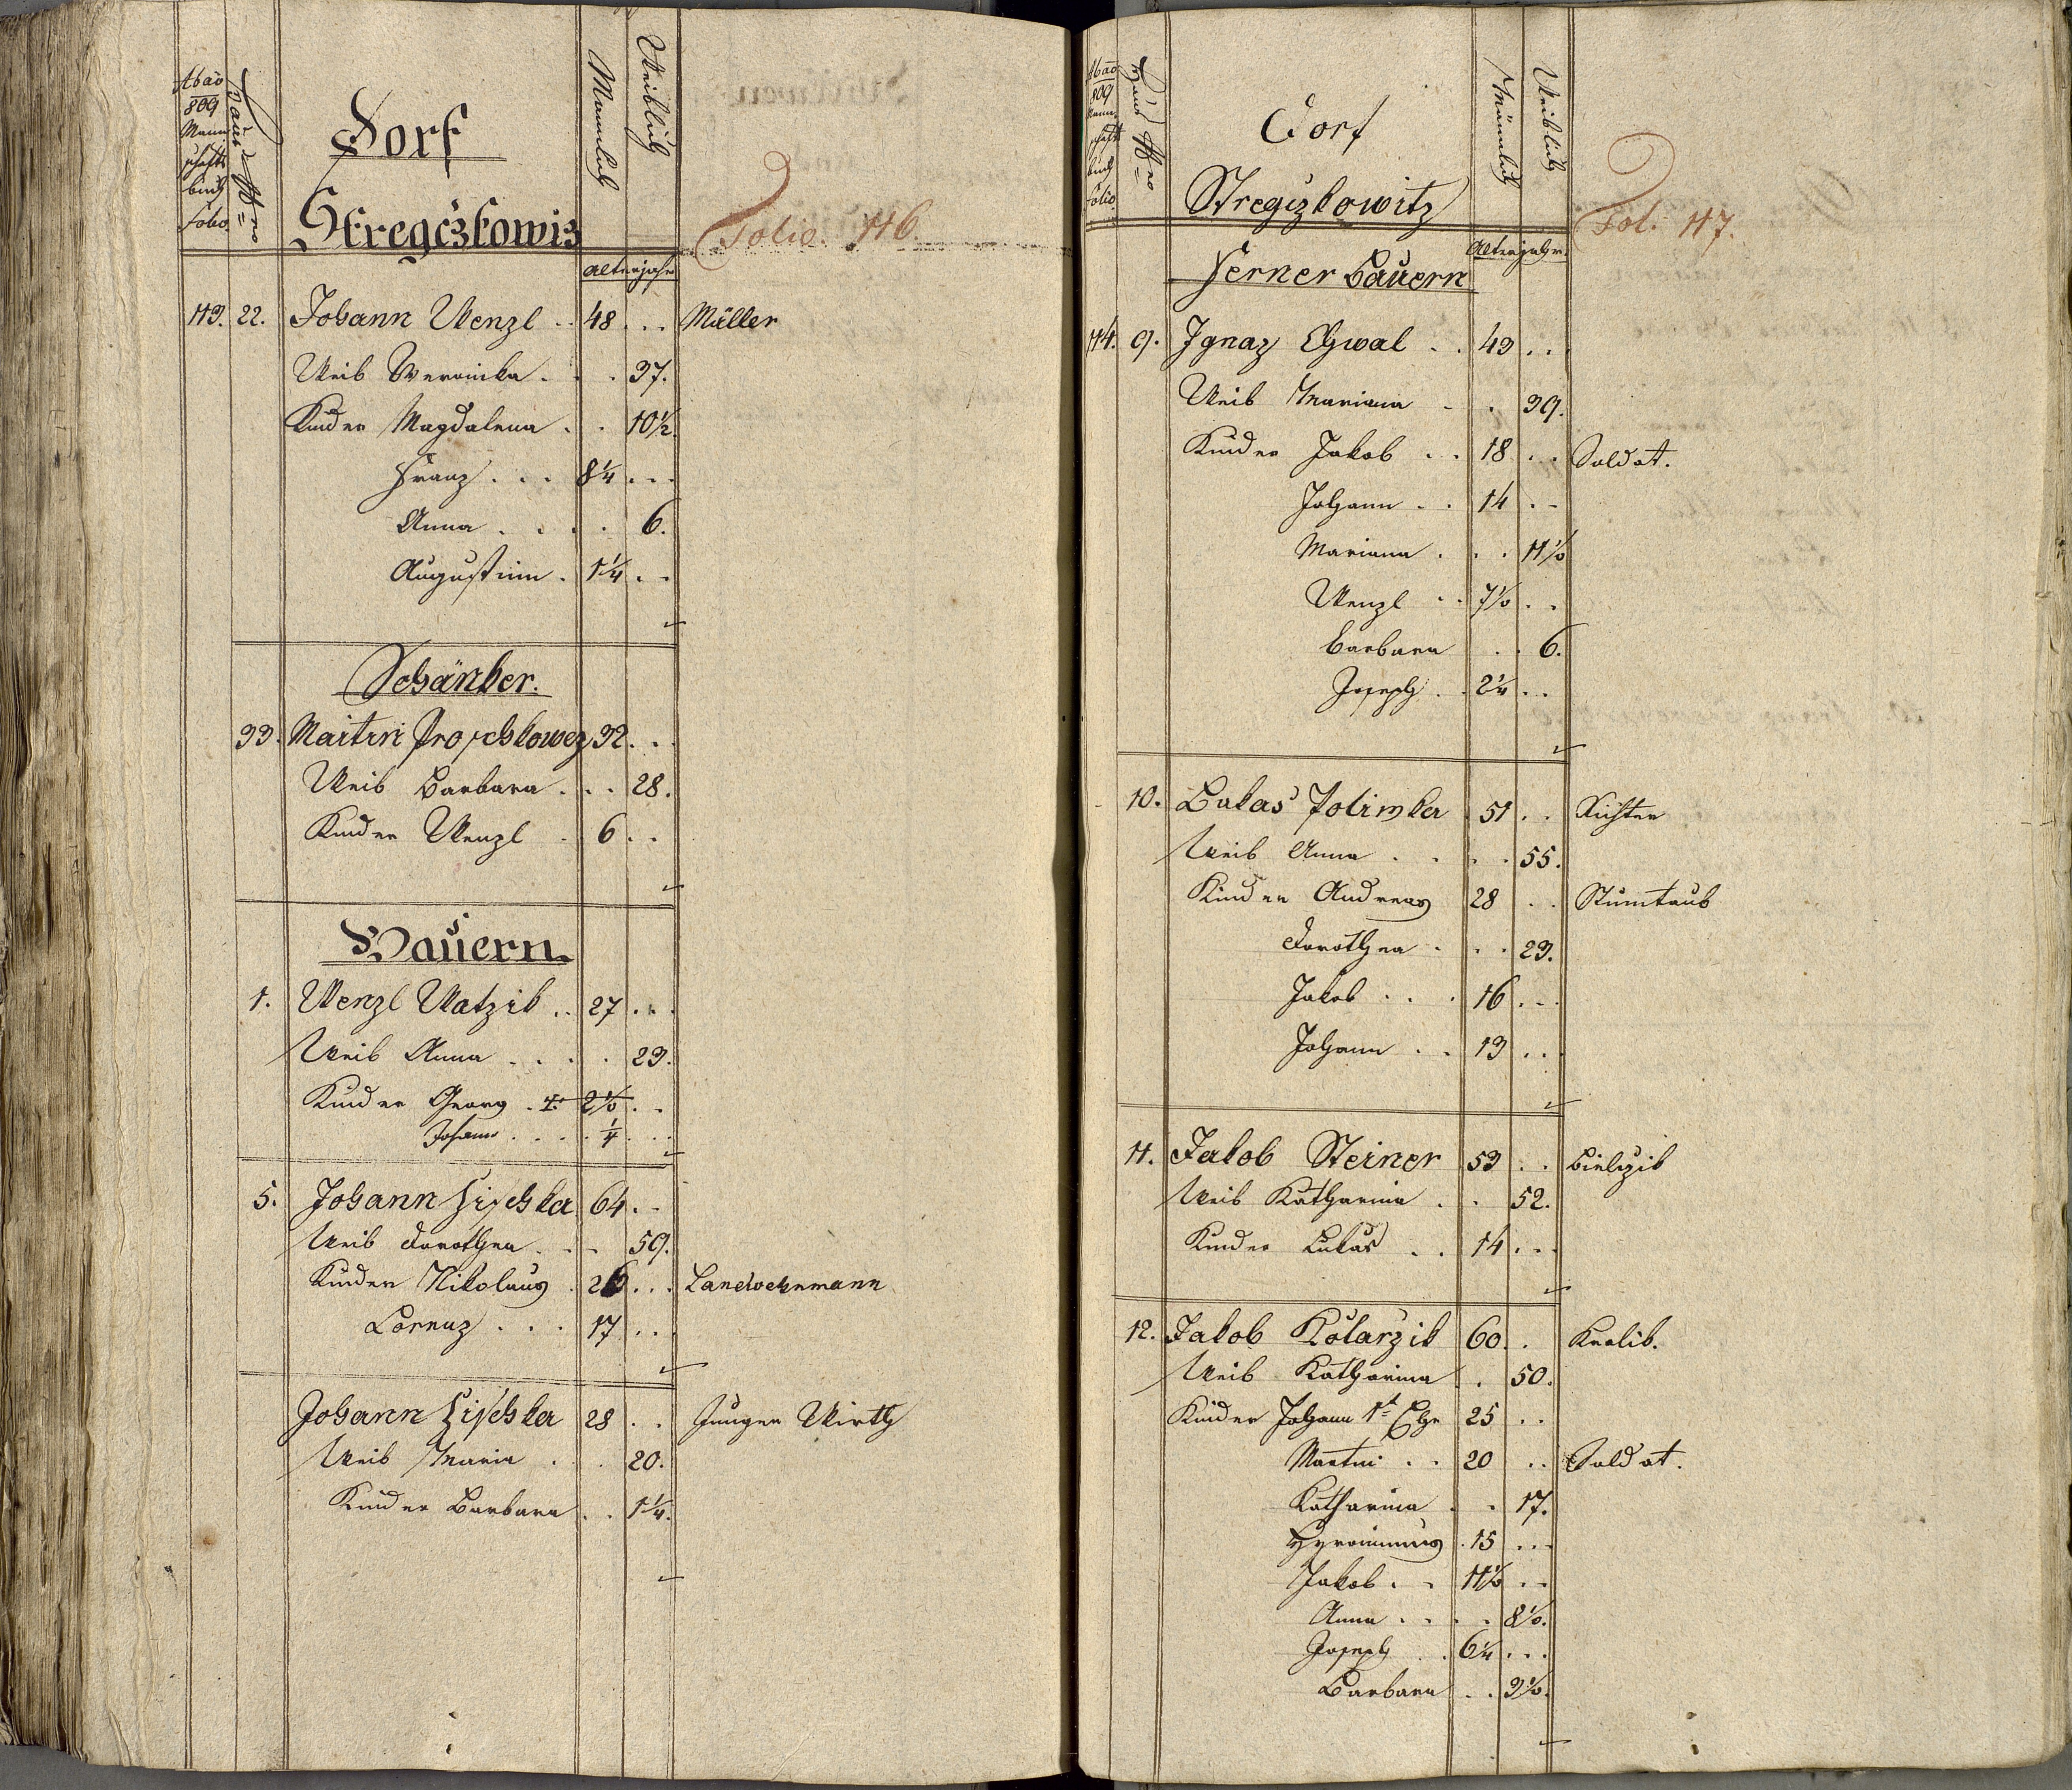 Ab aō 809 Mannschafts buch Folio
Haus Nro
Dorf
Stregczkowiz
Mannlich
Weiblich
Folio. 116.
Altersjahr
113. 22. Johann Wenzl .. 48 ... Müller
Weib Weronika . . . 37.
Kinder Magdalena . . 10½.
Franz . . . 8¼ ...
Anna . . . . 6.
Augustinn . 1¼ ..
Schänker.
33. Martin Proschkowez 32. .
Weib Barbara . . . 28.
Kinder Wenzl . 6 ..
Bauern
1. Wenzl Watzik .. 27 ...
Weib Anna . . . . 23.
Kinder Georg . ✝ 2½ ..
Johann . . . . ¼ ...
5. Johann Zischka 64 . .
Weib Dorothea . . . 59.
Kinder Nikolaus . 26 ... Landwehrmann
Lorenz . . . 17 ..
Johann Zischka 28 .. Junger Wirth
Weib Maria . . 20.
Kinder Barbara . . 1¼.
Ab aō 809 Mannschafts buch Folio
Haus Nro
Dorf
Stregczkowitz
Männlich
Weiblich
Fol. 117.
Altersjahr.
Ferner Bauern
114. 9. Ignaz Chwal . . 43 ..
Weib Mariana . . 39.
Kinder Jakob . . 18 .. Soldat.
Johann . . 14 ..
Mariana . . . 11½
Wenzl . . 7½ . .
Barbara . . 6.
Joseph . . 2¼ ..
10. Lukas Polimka 51 . . Richter
Weib Anna . . . . 55.
Kinder Andreas 28 . . Stumtaub
Dorothea . . . 23.
Jakob . . . 16 ...
Johann . . 13 ...
11. Jakob Steiner 53 . . Bielczik
Weib Katharina . . 52.
Kinder Lukas . . 14 ...
12. Jakob Kolarzik 60 . . Kralik.
Weib Katharina . . 50.
Kinder Johann 1t Ehe 25 ..
Martin . . 20 .. Soldat.
Katharina . . 17.
Hyronimus . 15 ...
Jakob . . 11½ ..
Anna . . . . 8½.
Joseph . . 6¼ ...
Barbara . . 3½.